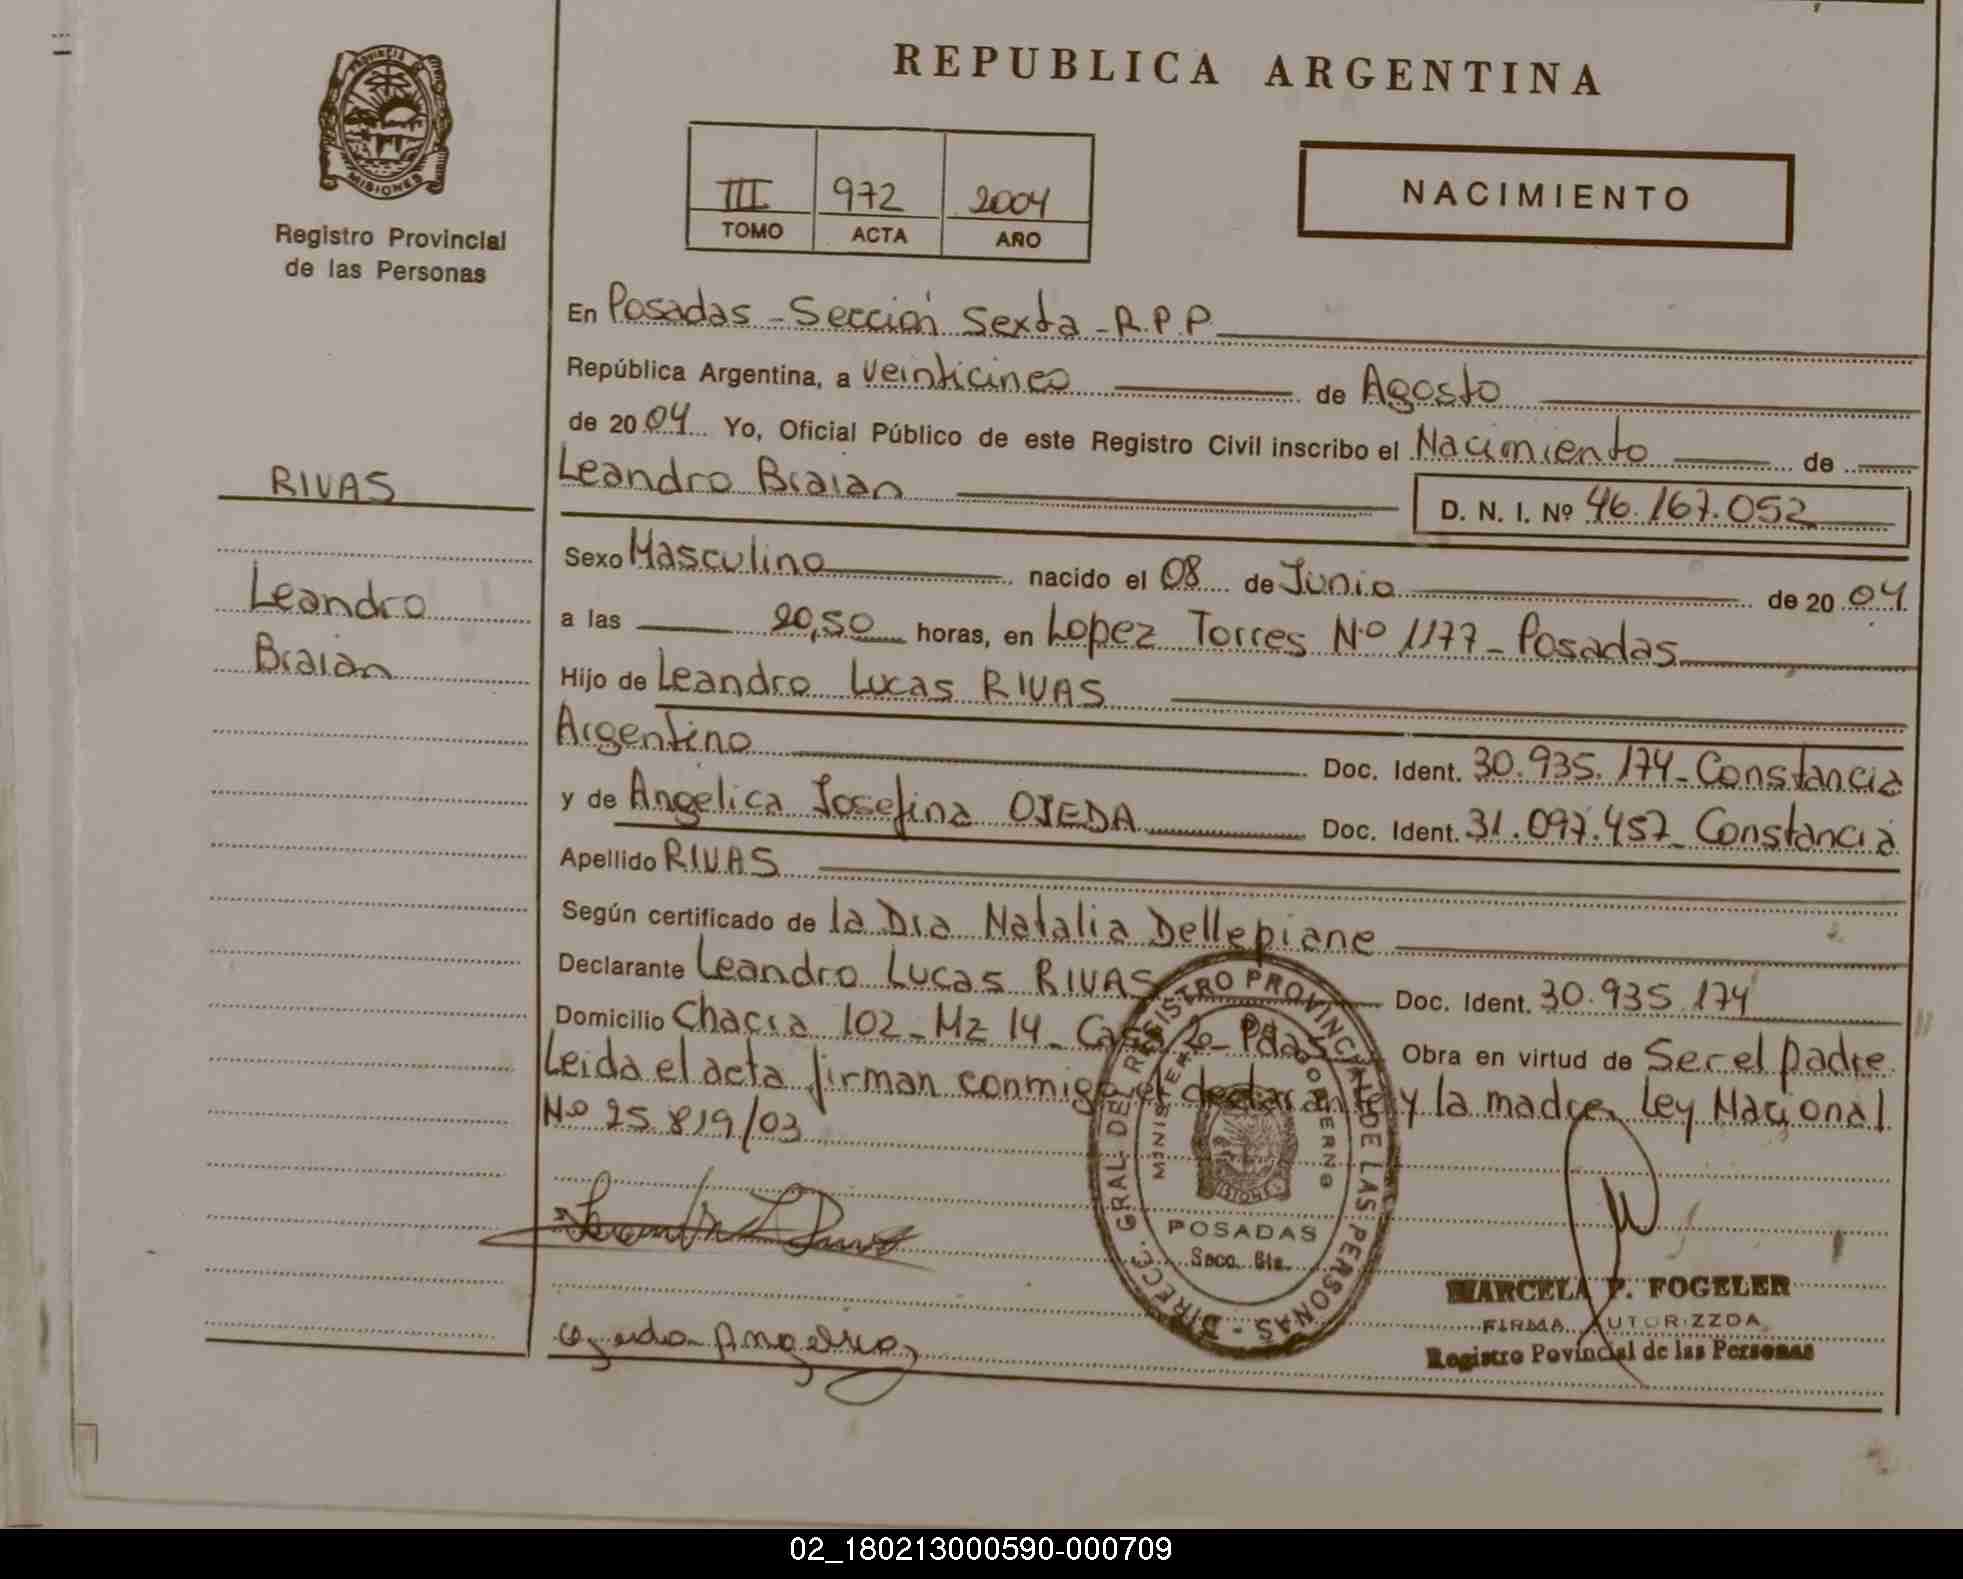 REPUBLICA ARGENTINA
PROVINCIA DE
MISIONES
Registro Provincial
de las Personas
III 972 2004
TOMO ACTA AÑO
NACIMIENTO
En Posadas - Sección Sexta - R.P.P.
República Argentina, a veinticinco de Agosto
de 2004 Yo, Oficial Público de este Registro Civil inscribo el Nacimiento de
RIVAS
Leandro Braian
D. N. I. Nº 46.167.052
Sexo Masculino nacido el 08 de Junio de 2004
Leandro
Braian
a las 20,50 horas, en Lopez Torres Nº 1177 - Posadas
Hijo de Leandro Lucas RIVAS
Argentino Doc. Ident. 30.935.174 - Constancia
y de Angelica Josefina OJEDA Doc. Ident. 31.097.457 - Constancia
Apellido RIVAS
Según certificado de la Dra Natalia Dellepiane
Declarante Leandro Lucas RIVAS Doc. Ident. 30.935.174
Domicilio Chacra 102 - Mz 14 - Casa 2 - Pdas Obra en virtud de Ser el padre
Leida el acta firman conmigo el declarante y la madre, Ley Nacional
Nº 25.819/03
DIRECC. GRAL. DEL REGISTRO PROVINCIAL DE LAS PERSONAS
MINISTERIO DE GOBIERNO
MISIONES
POSADAS
Secc. 6ta.
MARCELA P. FOGELER
FIRMA AUTORIZZDA
Registro Povincial de las Personas
Ojeda Angelica
02_180213000590-000709